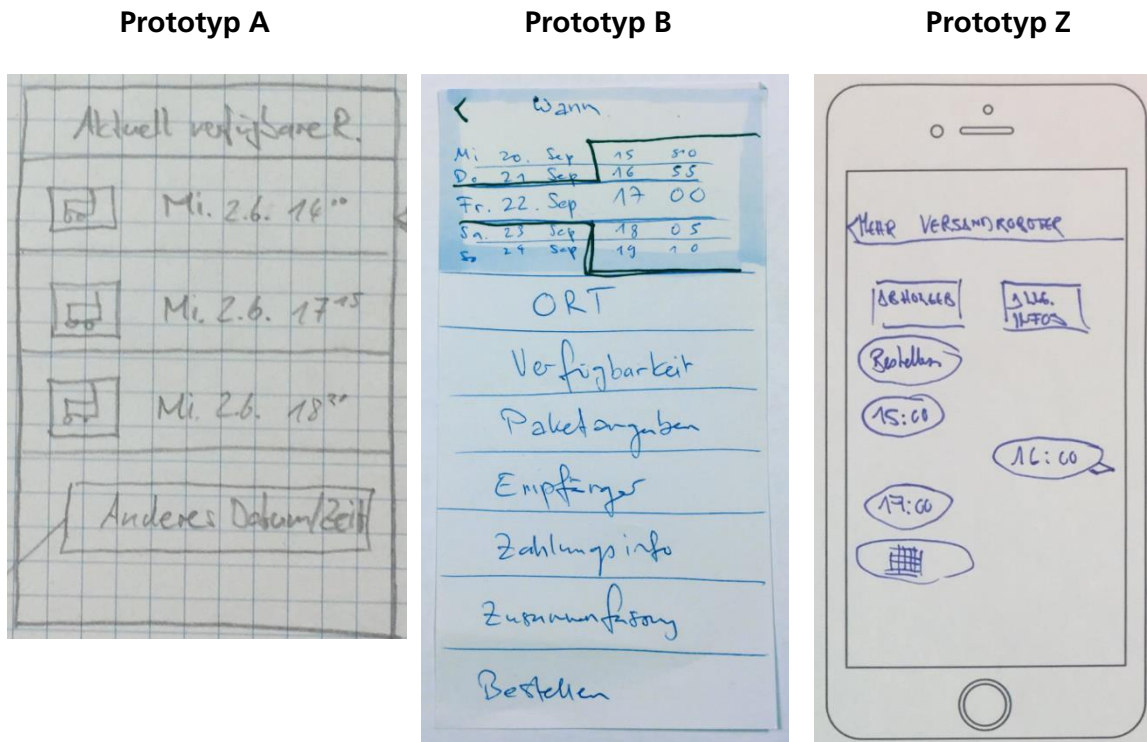 Prototyp A
Prototyp B
Prototyp Z
Aktuell verfügbare R.
Mi. 2.6. 14⁰⁰
Mi. 2.6. 17¹⁵
Mi. 2.6. 18³⁰
Anderes Datum/Zeit
< Wann
Mi 20. Sep 15 50
Do 21 Sep 16 55
Fr. 22. Sep 17 00
Sa. 23 Sep 18 05
So 24 Sep 19 10
ORT
Verfügbarkeit
Paketangaben
Empfänger
Zahlungsinfo
Zusammenfassung
Bestellen
< MEHR VERSANDROBOTER
ABHOLGEB
ALLG.
INFOS
Bestellen
15:00
16:00
17:00